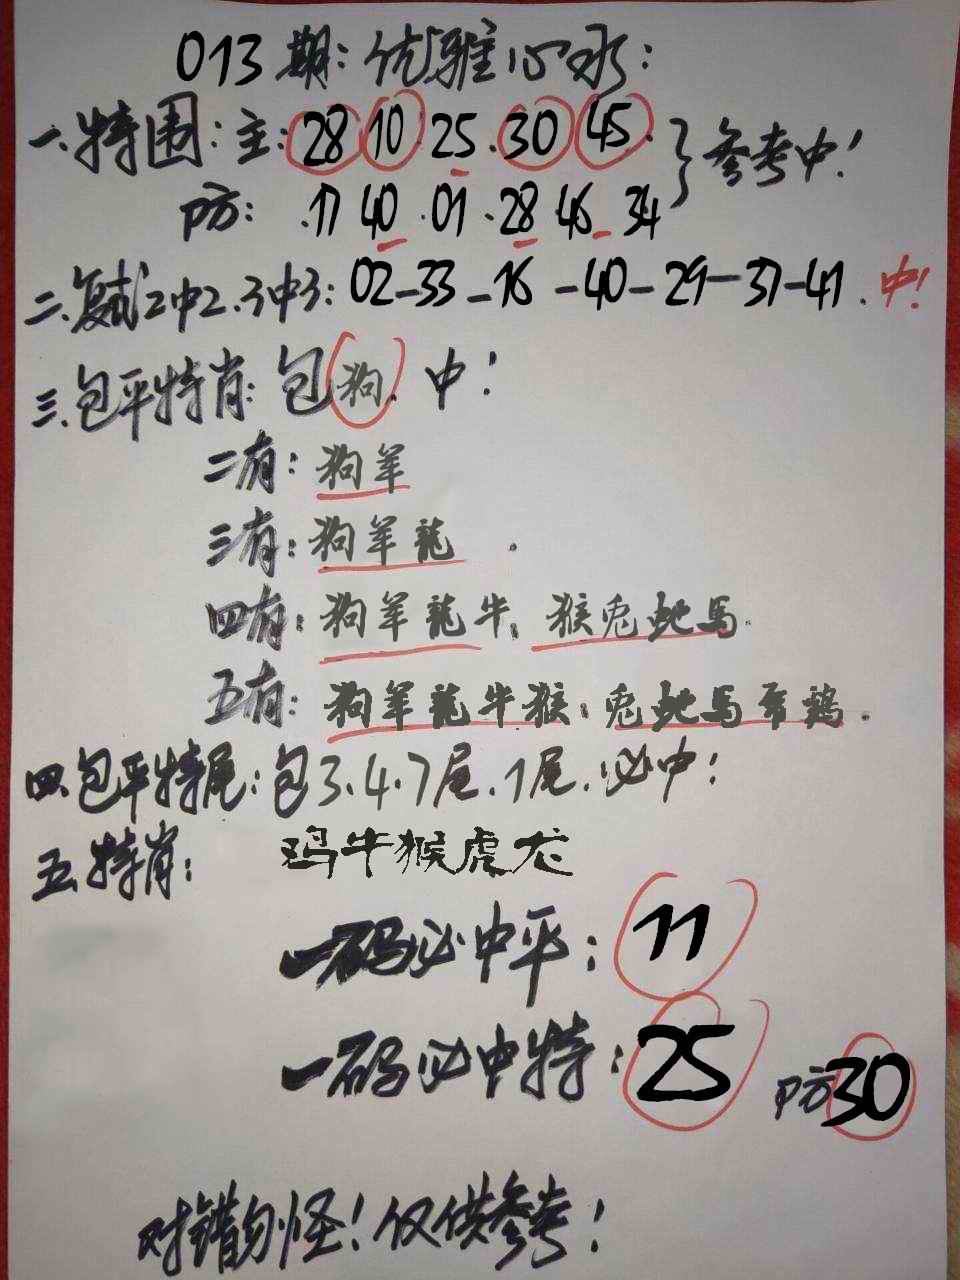 013期:优雅心水:
一.特围:主:28 10 25.30 45.
参考中!
防:.17 40.01.28 46 34
二.复式2中2.3中3:02-33-16-40-29-37-41.中!
三.包平特肖:包狗.中!
二有:狗羊
三有:狗羊龍.
四有:狗羊龍牛;猴兎蛇馬.
五有:狗羊龍牛猴;兎蛇馬虎鷄.
四.包平特尾:包3.4.7尾.1尾.必中!
五.特肖:鸡牛猴虎龙
一码必中平:11
一码必中特:25 防30
对错勿怪!仅供参考!